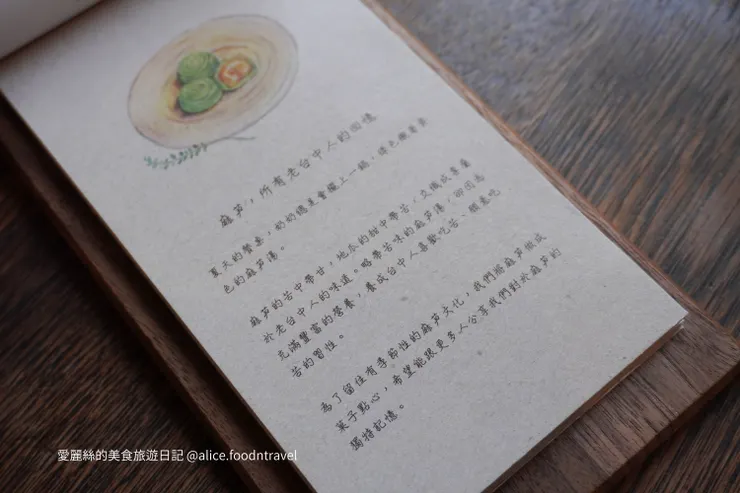 麻芛，所有老台中人的回憶
夏天的餐桌，奶奶總是會擺上一鍋，綠色襯著黃
色的麻芛湯。
麻芛的苦中帶甘，地瓜的甜中帶苦，交織成專屬
於老台中人的味道。略帶苦味的麻芛湯，卻因為
充滿豐富的營養，養成台中人喜歡吃苦、想要吃
苦的習性。
為了留住有季節性的麻芛文化，我們將麻芛做成
菓子點心，希望能跟更多人分享我們對於麻芛的
獨特記憶。
愛麗絲的美食旅遊日記 @alice.foodntravel